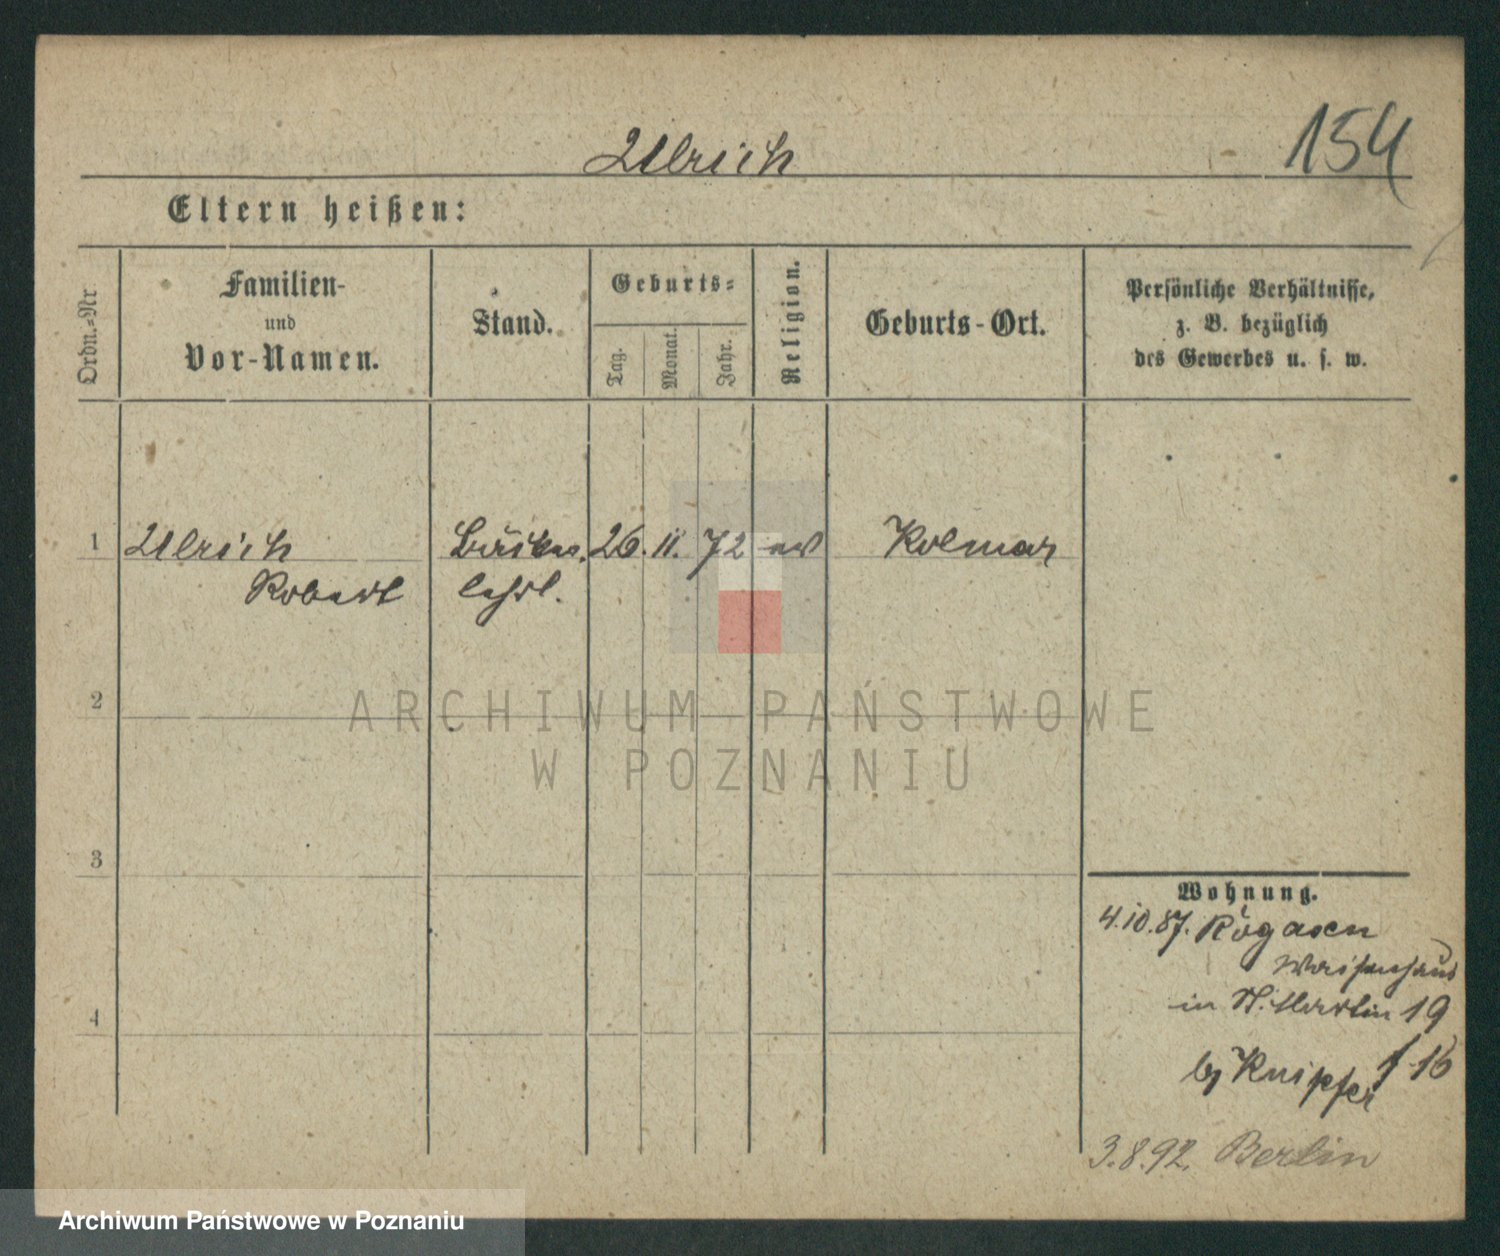 Ulrich
154
Eltern heißen:
Ordn.-Nr
Familien-
und
Vor-Namen.
Stand.
Geburts-
Tag.
Monat.
Jahr.
Religion.
Geburts-Ort.
Persönliche Verhältnisse,
z. B. bezüglich
des Gewerbes u. s. w.
1 Ulrich Bäcker 26. 11. 72 ev Kolmar
Robert lehrl.
2
ARCHIWUM PAŃSTWOWE
W POZNANIU
3
Wohnung.
4.10.87. Rogasen
Waisenhaus
in St. Martin 19
4
bj Knipfer 16
3.8.92. Berlin
Archiwum Państwowe w Poznaniu